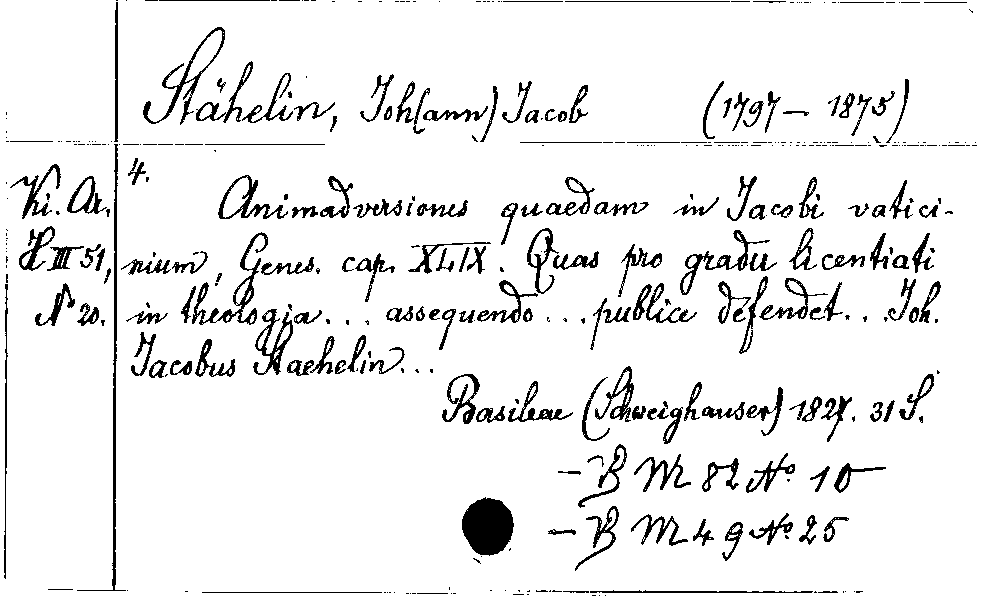 Stähelin, Joh(ann) Jacob (1797 – 1875)
4.
Ki. Ar.
H III 51,
No 20.
Animadversiones quaedam in Jacobi vatici-
nium, Genes. cap. XLIX. Quas pro gradu licentiati
in theologia... assequendo... publice defendet... Joh.
Jacobus Staehelin...
Basileae (Schweighauser) 1827. 31 S.
– B M 82 No 10
– B M 49 No 25